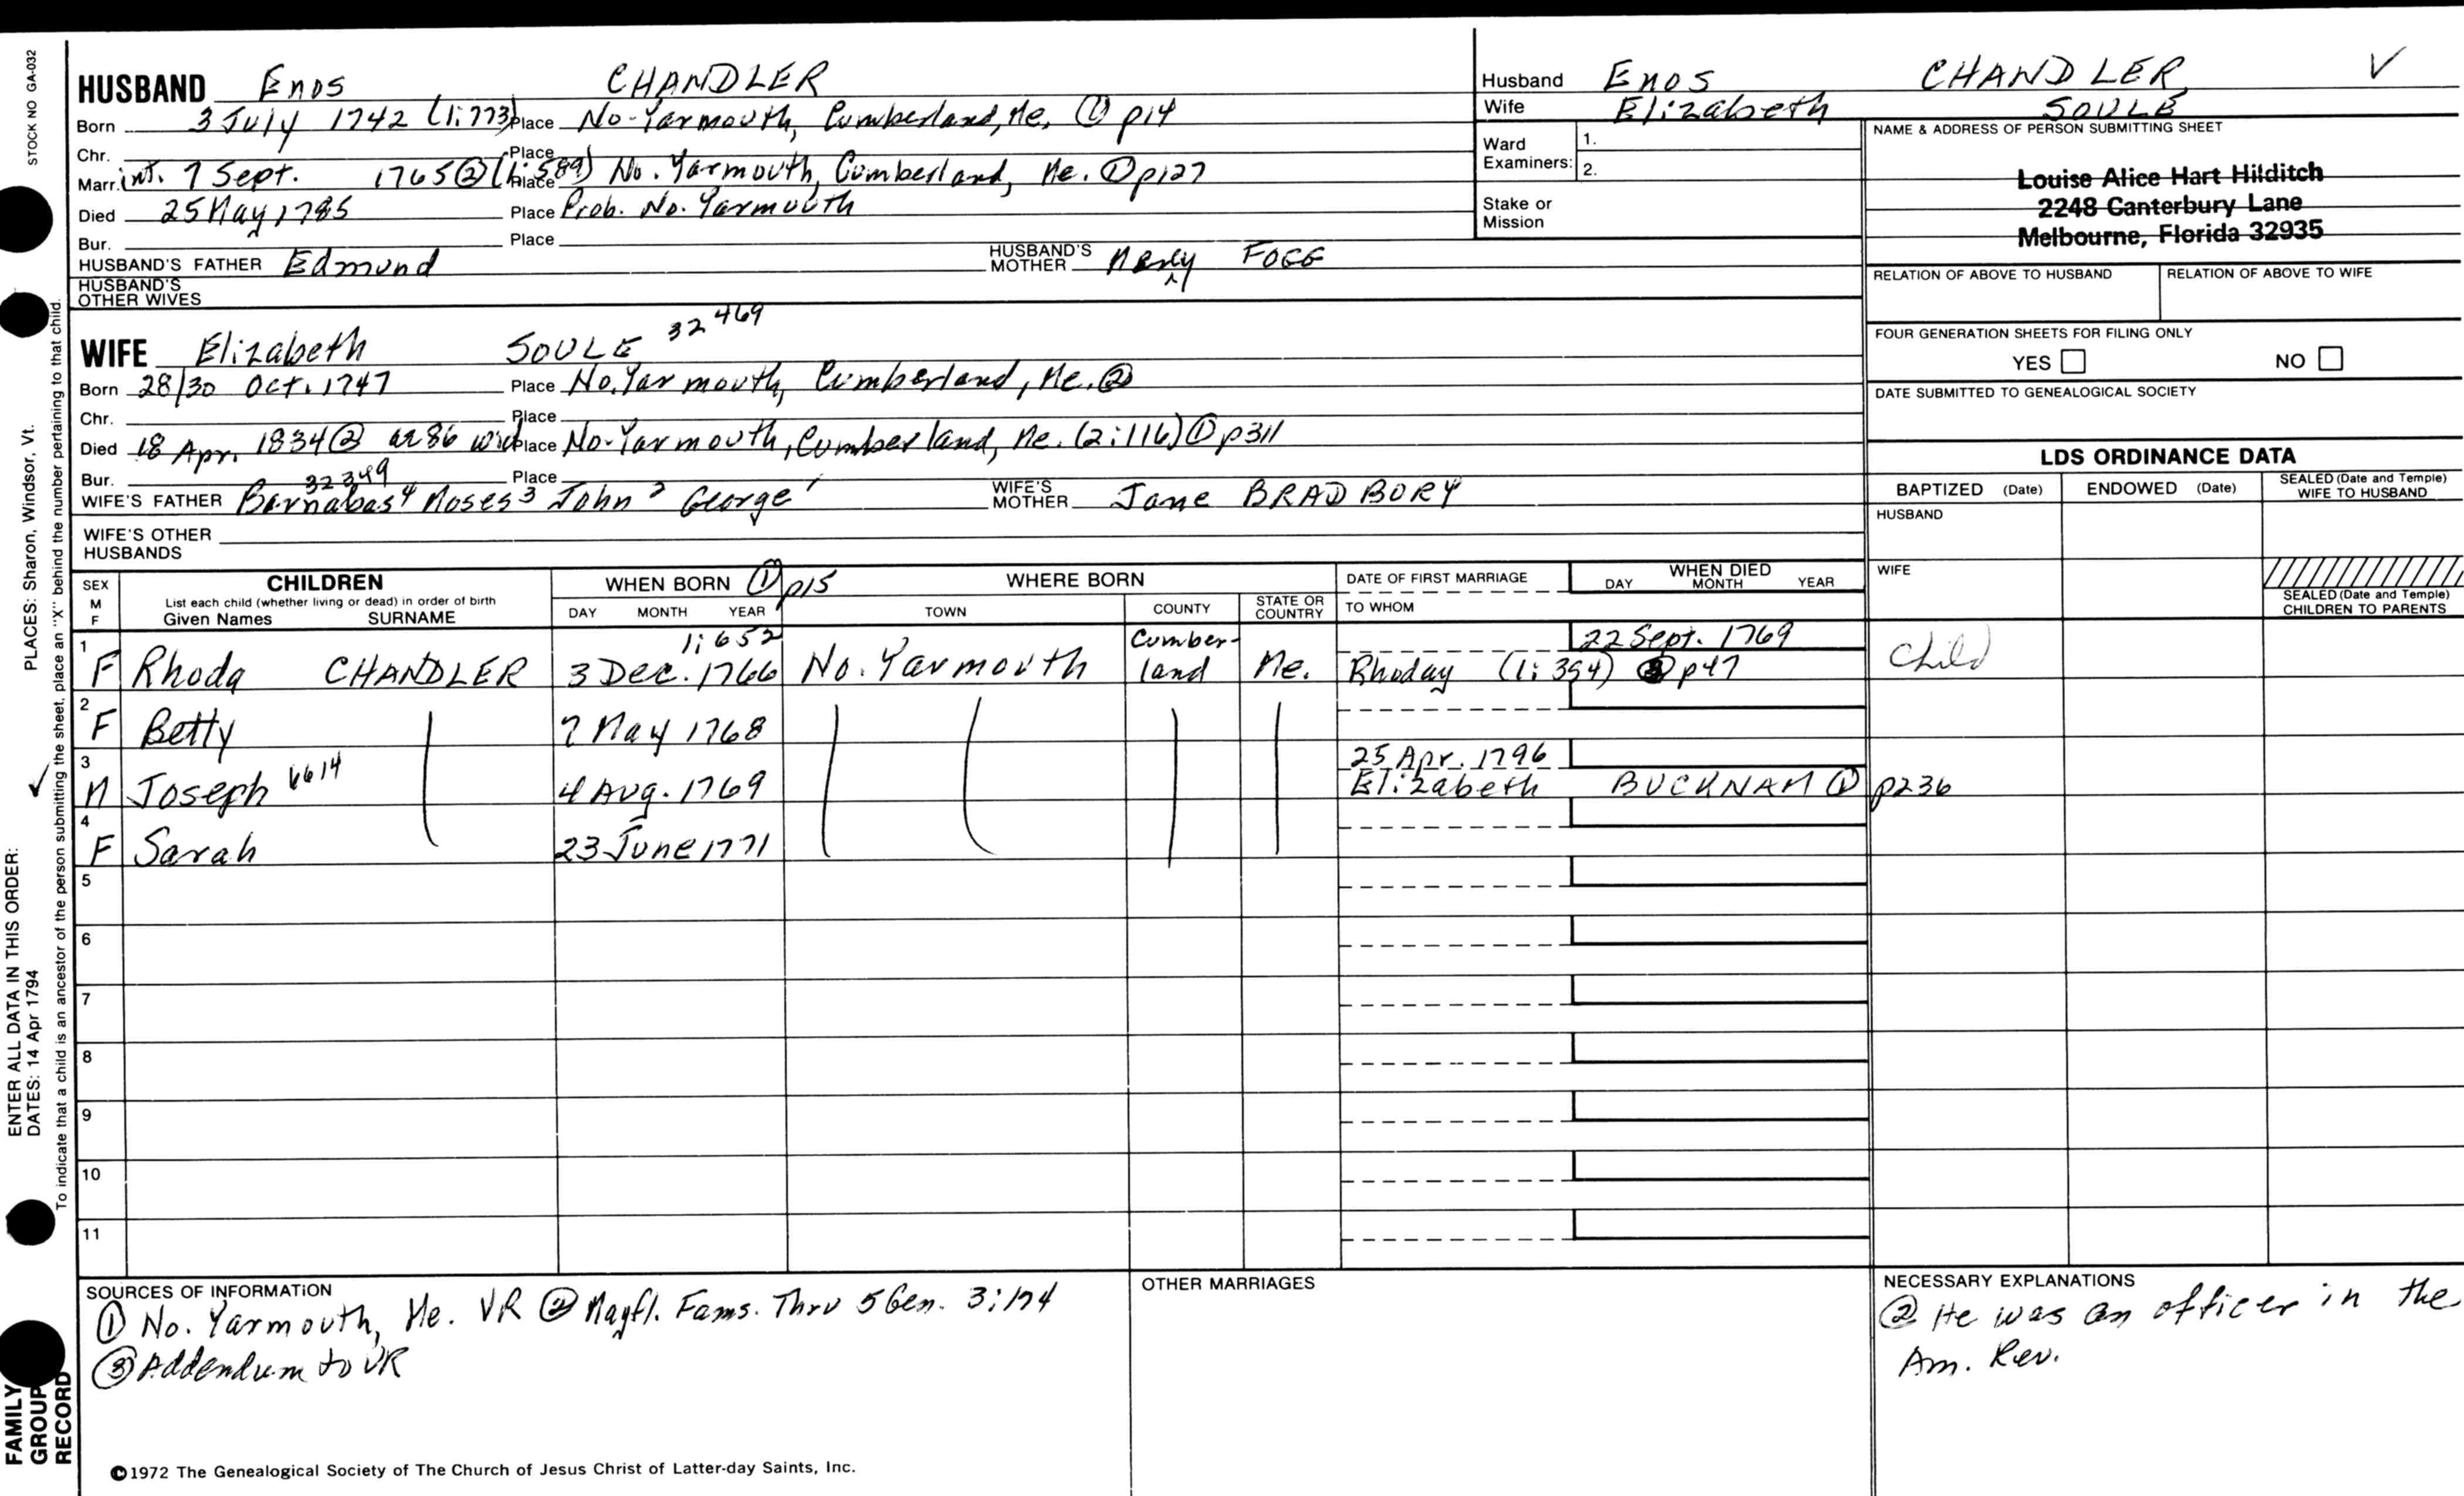 STOCK NO GA-032
HUSBAND Enos CHANDLER
Born 3 July 1742 (1:773) Place No. Yarmouth, Cumberland, Me. ① p14
Chr. Place
Marr. int. 7 Sept. 1765 ② (1:589) Place No. Yarmouth, Cumberland, Me. ① p127
Died 25 May 1785 Place Prob. No. Yarmouth
Bur. Place
HUSBAND'S FATHER Edmund HUSBAND'S MOTHER Mercy FOGG
HUSBAND'S OTHER WIVES
WIFE Elizabeth SOULE 32469
Born 28/30 Oct. 1747 Place No. Yarmouth, Cumberland, Me. ②
Chr. Place
Died 18 Apr. 1834 ② ae 86 wid Place No. Yarmouth, Cumberland, Me. (2:116) ① p311
Bur. 32349 Place
WIFE'S FATHER Barnabas⁴ Moses³ John² George¹ WIFE'S MOTHER Jane BRADBURY
WIFE'S OTHER HUSBANDS
Husband Enos CHANDLER V
Wife Elizabeth SOULE
Ward Examiners: 1.
2.
Stake or Mission
NAME & ADDRESS OF PERSON SUBMITTING SHEET
Louise Alice Hart Hilditch
2248 Canterbury Lane
Melbourne, Florida 32935
RELATION OF ABOVE TO HUSBAND RELATION OF ABOVE TO WIFE
FOUR GENERATION SHEETS FOR FILING ONLY
YES NO
DATE SUBMITTED TO GENEALOGICAL SOCIETY
LDS ORDINANCE DATA
BAPTIZED (Date) ENDOWED (Date) SEALED (Date and Temple) WIFE TO HUSBAND
HUSBAND
WIFE
SEALED (Date and Temple) CHILDREN TO PARENTS
SEX M F CHILDREN
List each child (whether living or dead) in order of birth
Given Names SURNAME
WHEN BORN ① p15 WHERE BORN
DAY MONTH YEAR TOWN COUNTY STATE OR COUNTRY
DATE OF FIRST MARRIAGE
TO WHOM
WHEN DIED
DAY MONTH YEAR
1 1:652 Cumber- 22 Sept. 1769
F Rhoda CHANDLER 3 Dec. 1766 No. Yarmouth land Me. Rhoday (1:354) ③ p47 Child
2
F Betty 7 May 1768
3 25 Apr. 1796
M Joseph 6614 4 Aug. 1769 Elizabeth BUCKNAM ① p236
4
F Sarah 23 June 1771
5
6
7
8
9
10
11
SOURCES OF INFORMATION
① No. Yarmouth, Me. VR ② Mayfl. Fams. Thru 5 Gen. 3:174
③ Addendum to VR
OTHER MARRIAGES
NECESSARY EXPLANATIONS
② He was an officer in the
Am. Rev.
©1972 The Genealogical Society of The Church of Jesus Christ of Latter-day Saints, Inc.
PLACES: Sharon, Windsor, Vt.
ENTER ALL DATA IN THIS ORDER:
DATES: 14 Apr 1794
To indicate that a child is an ancestor of the person submitting the sheet, place an "X" behind the number pertaining to that child.
FAMILY GROUP RECORD